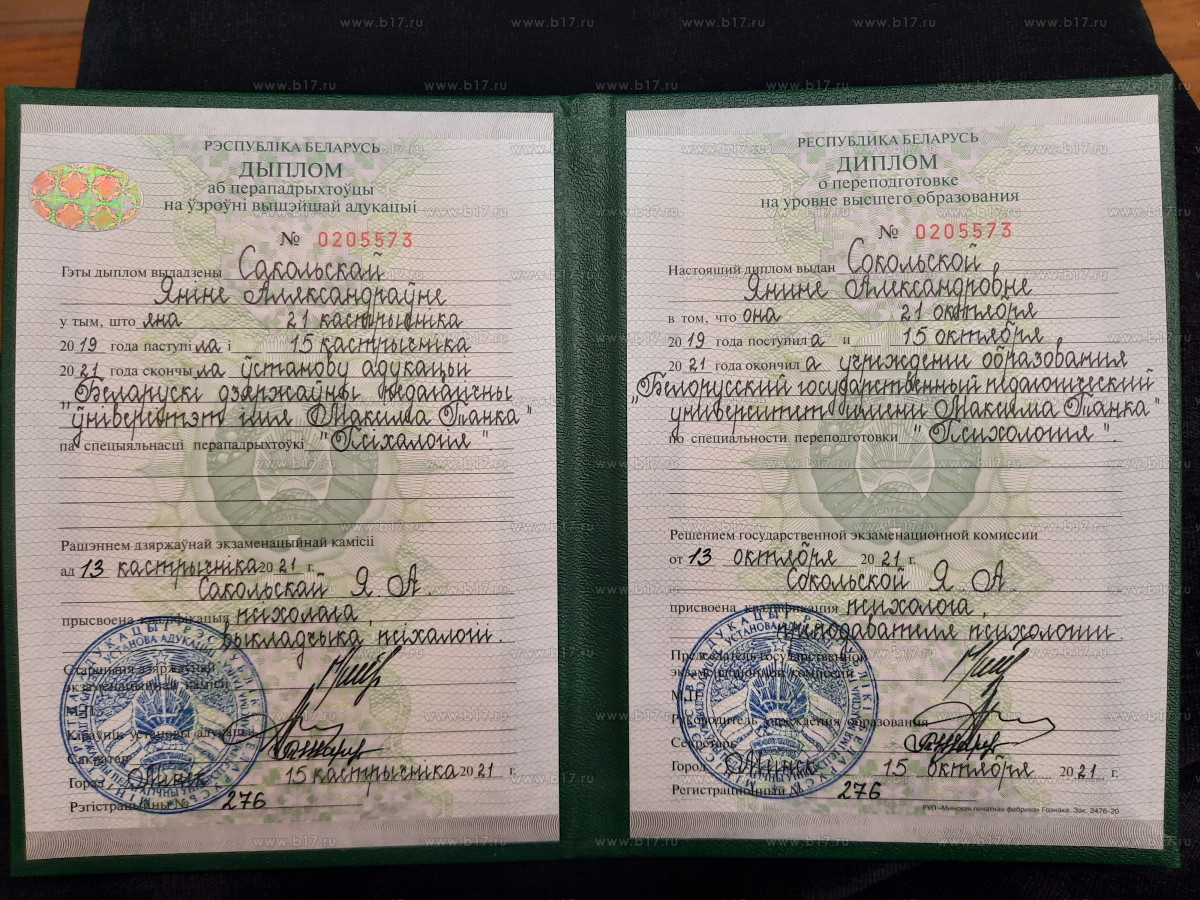 РЭСПУБЛІКА БЕЛАРУСЬ
ДЫПЛОМ
аб перападрыхтоўцы
на ўзроўні вышэйшай адукацыі
№ 0205573
Гэты дыплом выдадзены Сакольскай
Яніне Аляксандраўне
у тым, што яна 21 кастрычніка
2019 года паступіла і 15 кастрычніка
2021 года скончыла ўстанову адукацыі
"Беларускі дзяржаўны педагагічны
ўніверсітэт імя Максіма Танка"
па спецыяльнасці перападрыхтоўкі "Псіхалогія".
Рашэннем дзяржаўнай экзаменацыйнай камісіі
ад 13 кастрычніка 2021 г.
Сакольскай Я. А.
прысвоена кваліфікацыя псіхолага,
выкладчыка псіхалогіі.
Старшыня дзяржаўнай
экзаменацыйнай камісіі
М.П.
Кіраўнік установы адукацыі
Сакратар
Горад Мінск 15 кастрычніка 2021 г.
Рэгістрацыйны № 276
РЕСПУБЛИКА БЕЛАРУСЬ
ДИПЛОМ
о переподготовке
на уровне высшего образования
№ 0205573
Настоящий диплом выдан Сокольской
Янине Александровне
в том, что она 21 октября
2019 года поступила и 15 октября
2021 года окончила учреждении образования
"Белорусский государственный педагогический
университет имени Максима Танка"
по специальности переподготовки "Психология".
Решением государственной экзаменационной комиссии
от 13 октября 2021 г.
Сокольской Я. А.
присвоена квалификация психолога,
преподавателя психологии.
Председатель государственной
экзаменационной комиссии
М.П.
Руководитель учреждения образования
Секретарь
Город Минск 15 октября 2021 г.
Регистрационный № 276
РУП «Минская печатная фабрика» Гознака. Зак. 2476-20
www.b17.ru